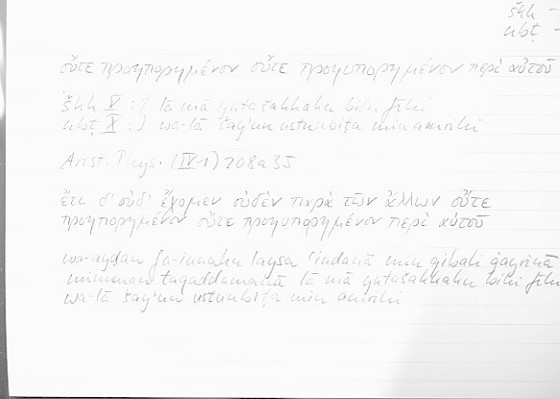 škk –
nbṭ –
οὔτε προηπορημένον οὔτε προηυπορημένον περὶ αὐτοῦ
škk V :) lā mā yutašakkaku bihī fīhi
nbṭ X :) wa-lā šay'un ustunbiṭa min amrihī
Arist. Phys. (IV-1) 208a35
ἔτι δ' οὐδ' ἔχομεν οὐδὲν παρὰ τῶν ἄλλων οὔτε
προηπορημένον οὔτε προηυπορημένον περὶ αὐτοῦ
wa-ayḍan fa-innahu laysa 'indanā min qibali ġayrinā
mimman taqaddamanā lā mā yutašakkaku bihī fīhi
wa-lā šay'un ustunbiṭa min amrihī